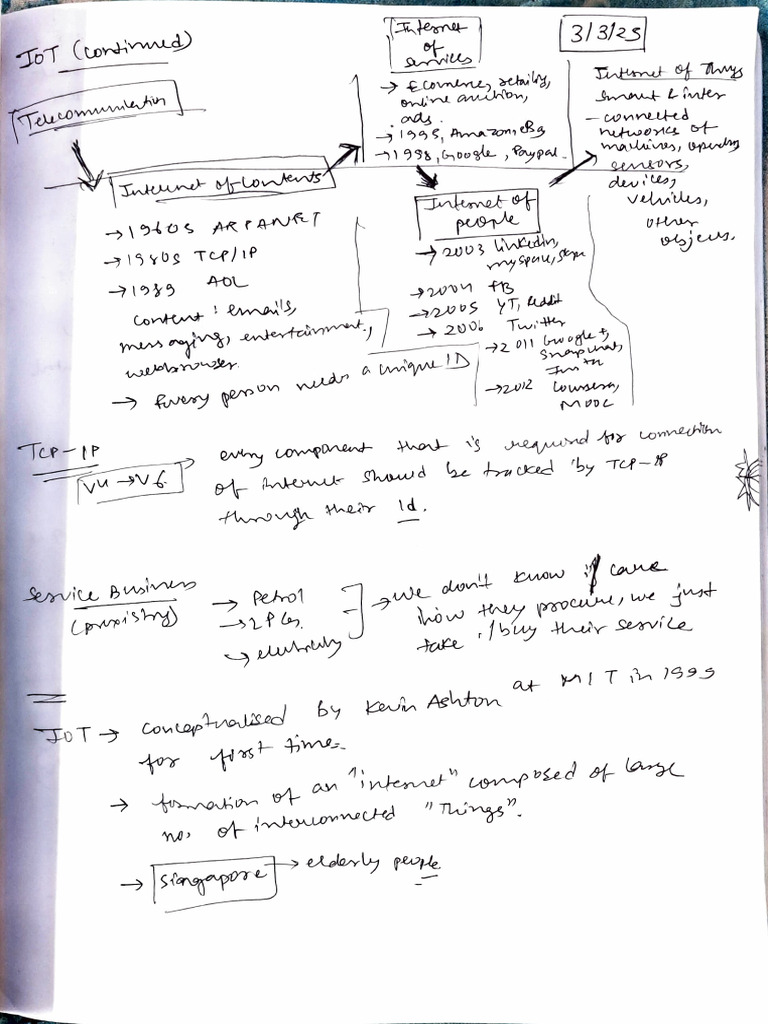 IOT (continued)
3/3/25
Telecommunication
Internet of contents
→ 1960s ARPANET
→ 1980s TCP/IP
→ 1989 AOL
content: emails,
messaging, entertainment,
webbrowser
→ Every person needs a unique ID
Internet
of
services
→ Ecommerce, retailing,
online auction,
ads.
→ 1995, Amazon, eBay
→ 1998, Google, Paypal.
Internet of
people
→ 2003 linkedin,
myspace, skype
→ 2004 FB
→ 2005 YT, Reddit
→ 2006 Twitter
→ 2011 Google+,
Snapchat,
→ 2012 Coursera,
MOOC
Internet of Things
Smart & inter
- connected
networks of
machines,
sensors,
devices,
vehicles,
other
objects.
TCP-IP
V4 → V6.
→ every component that is required for connection
of internet should be tracked by TCP-IP
through their Id.
Service Business
→ Petrol
→ electricity
→ we don't know / care
how they procure, we just
take / buy their service
IOT → conceptualised by Kevin Ashton at MIT in 1999
for first time.
→ formation of an "internet" composed of large
no. of interconnected "Things".
→ Singapore → elderly people